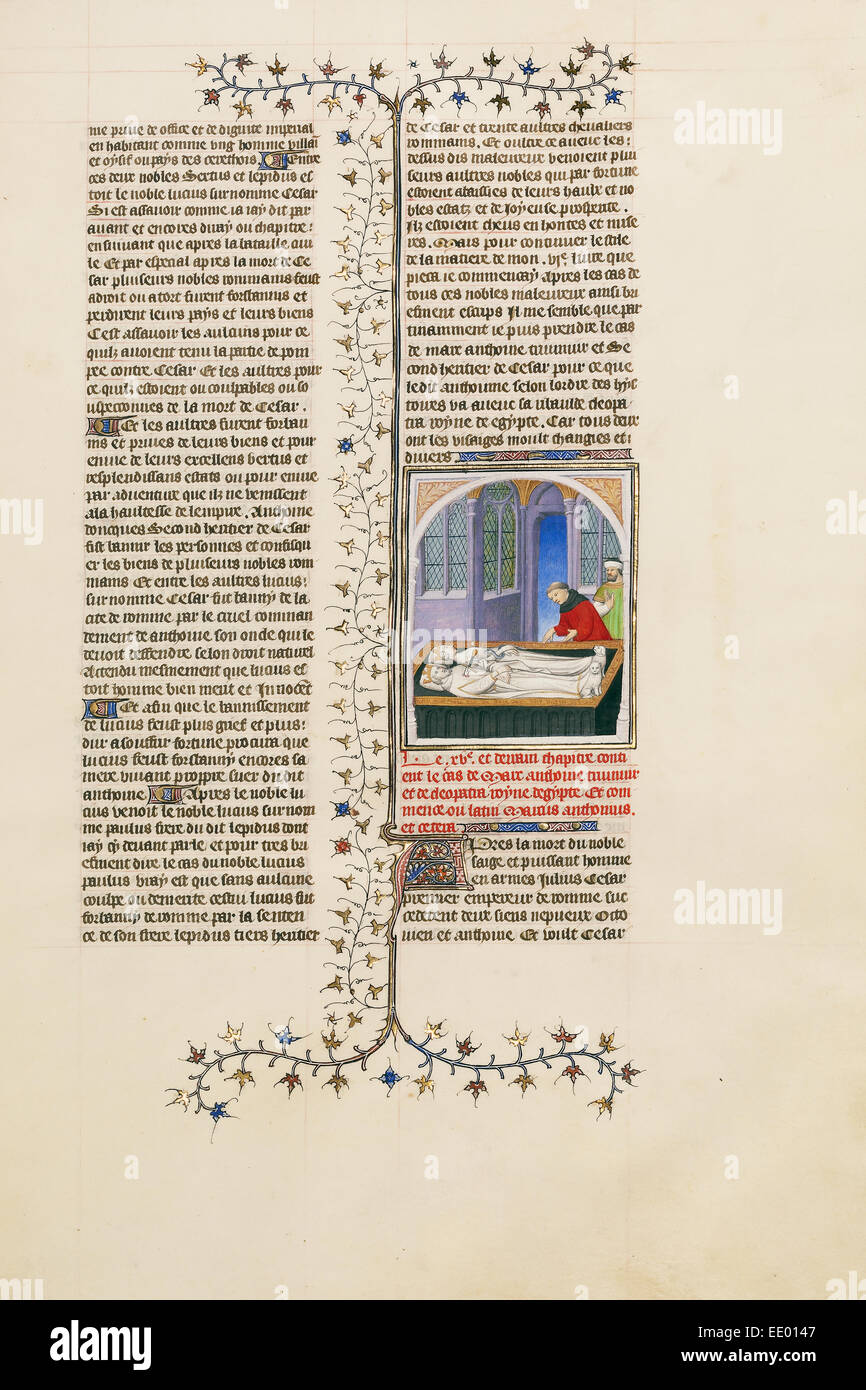 me priue de office et de dignite imperial
en habitant comme ung homme villai
et oysif ou pays des cerethois. Entre
ces deux nobles Sextus et lepidus es
toit le noble lucius surnomme Cesar
Si est assauoir comme ia iay dit par
auant et encores diray ou chapitre
ensuiuant que apres la bataille ciui
le Et par especial apres la mort de Ce
sar pluiseurs nobles rommains feust
adroit ou atort furent forbannis et
perdirent leurs pays et leurs biens
Cest assauoir les aulcuns pour ce
quilz auoient tenu la partie de pom
pee contre Cesar Et les aultres pour
ce quilz estoient ou coulpables ou so
uspeconnes de la mort de Cesar.
Et les aultres furent forban
nis et priues de leurs biens et pour
enuie de leurs excellens vertus et
resplendissans estats ou pour enuie
par aduenture que ilz ne venissent
ala haultesse de lempire. Anthoine
doncques Second heritier de Cesar
fist banir les personnes et confisqu
er les biens de pluiseurs nobles rom
mains Et entre les aultres lucius
surnomme Cesar fut banny de la
cite de romme par le cruel comman
dement de anthoine son oncle qui le
deuoit deffendre selon droit naturel
Attendu mesmement que lucius es
toit homme bien meur et Innocent
Et afin que le bannissement
de lucius feust plus grief et plus
dur a souffrir fortune procura que
lucius feust forbanny encores sa
mere viuant propre suer du dit
anthoine. Apres le noble lu
cius venoit le noble lucius surnom
me paulus frere du dit lepidus dont
iay cy deuant parle. et pour tres bri
efment dire le cas du noble lucius
paulus vray est que sans aulcune
coulpe ou demerite cestui lucius fut
forbanny de romme par la senten
ce de son frere lepidus tiers heritier
de Cesar et trente aultres cheualiers
rommains. Et oultre ce auec les
dessus dis maleureux venoient plui
seurs aultres nobles qui par fortune
estoient abaissies de leurs haulx et no
bles estatz et de joyeuse prosperite.
Ilz estoient cheus en hontes et mise
res. Mais pour continuer le stile
de la matiere de mon .vi.e liure que
pieca ie commencay Apres les cas de
tous ces nobles maleureux ainsi bri
efment escrips Il me semble que par
tinamment ie puis prendre le cas
de marc anthoine triumuir et Se
cond heritier de Cesar pour ce que
ledit anthoine selon lordre des hys
toires va auec sa ribaulde cleopa
tra royne de egypte. Car tous deux
ont les visaiges moult changies et
diuers
Le .xv.e et derrain chapitre conti
ent le cas de Marc anthoine triumuir
et de cleopatra royne degypte. Et com
mence ou latin Marcus anthonius.
et cetera
Apres la mort du noble
saige et puissant homme
en armes Julius Cesar
premier empereur de romme suc
cederent deux siens nepueux Octo
uien et anthoine Et voult Cesar
alamy
Image ID: EE0147
www.alamy.com